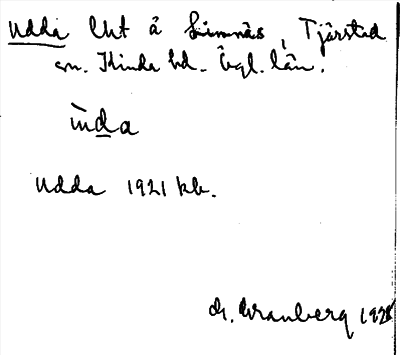 Udda lht å Simnäs, Tjärstad
sn. Kinda hd. Ögl. län.
ùda
Udda 1921 kb.
G. Granberg 1928